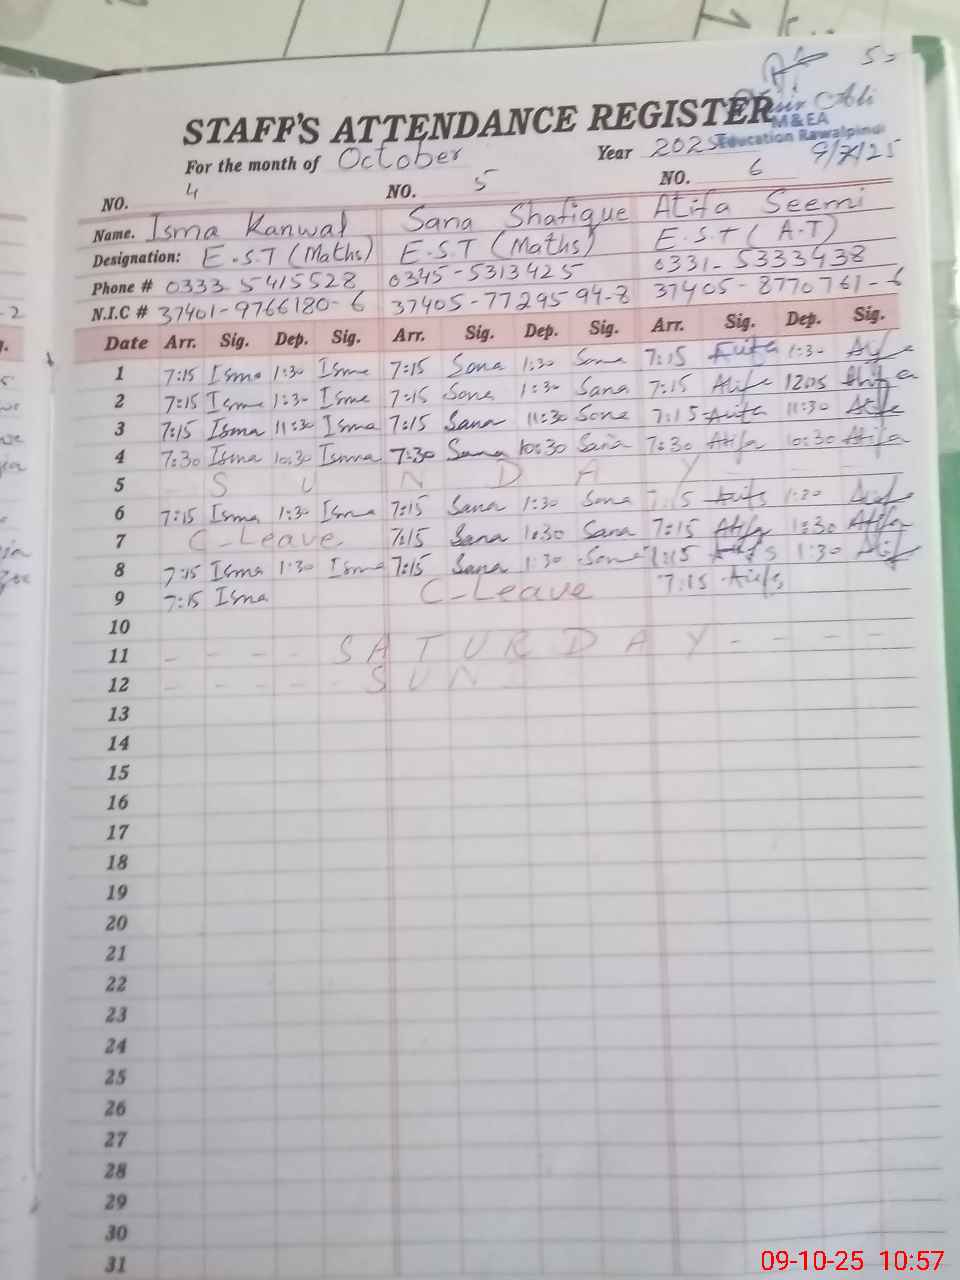 STAFF'S ATTENDANCE REGISTER
Ali
M & EA
Education Rawalpindi
For the month of October Year 2025 9/7/25
NO. 4 NO. 5 NO. 6
Name. Isma Kanwal Sana Shafique Atifa Seemi
Designation: E.S.T (Maths) E.S.T (Maths) E.S.T (A.T)
Phone # 0333 5415528 0345-5313425 0331-5333438
N.I.C # 37401-9766180-6 37405-7729594-8 37405-8770761-6
Date Arr. Sig. Dep. Sig. Arr. Sig. Dep. Sig. Arr. Sig. Dep. Sig.
1 7:15 Isma 1:30 Isma 7:15 Sana 1:30 Sana 7:15 Atifa 1:30 Atifa
2 7:15 Isma 1:30 Isma 7:15 Sana 1:30 Sana 7:15 Atifa 1205 Atifa
3 7:15 Isma 11:30 Isma 7:15 Sana 11:30 Sana 7:15 Atifa 11:30 Atifa
4 7:30 Isma 10:30 Isma 7:30 Sana 10:30 Sana 7:30 Atifa 10:30 Atifa
5 S U N D A Y
6 7:15 Isma 1:30 Isma 7:15 Sana 1:30 Sana 7:15 Atifa 1:30 Atifa
7 C-Leave 7:15 Sana 1:30 Sana 7:15 Atifa 1:30 Atifa
8 7:15 Isma 1:30 Isma 7:15 Sana 1:30 Sana 7:15 Atifa 1:30 Atifa
9 7:15 Isma C-Leave 7:15 Atifa
10
11 - - - - S A T U R D A Y - - - -
12 - - - - - S U N
13
14
15
16
17
18
19
20
21
22
23
24
25
26
27
28
29
30
31
09-10-25 10:57